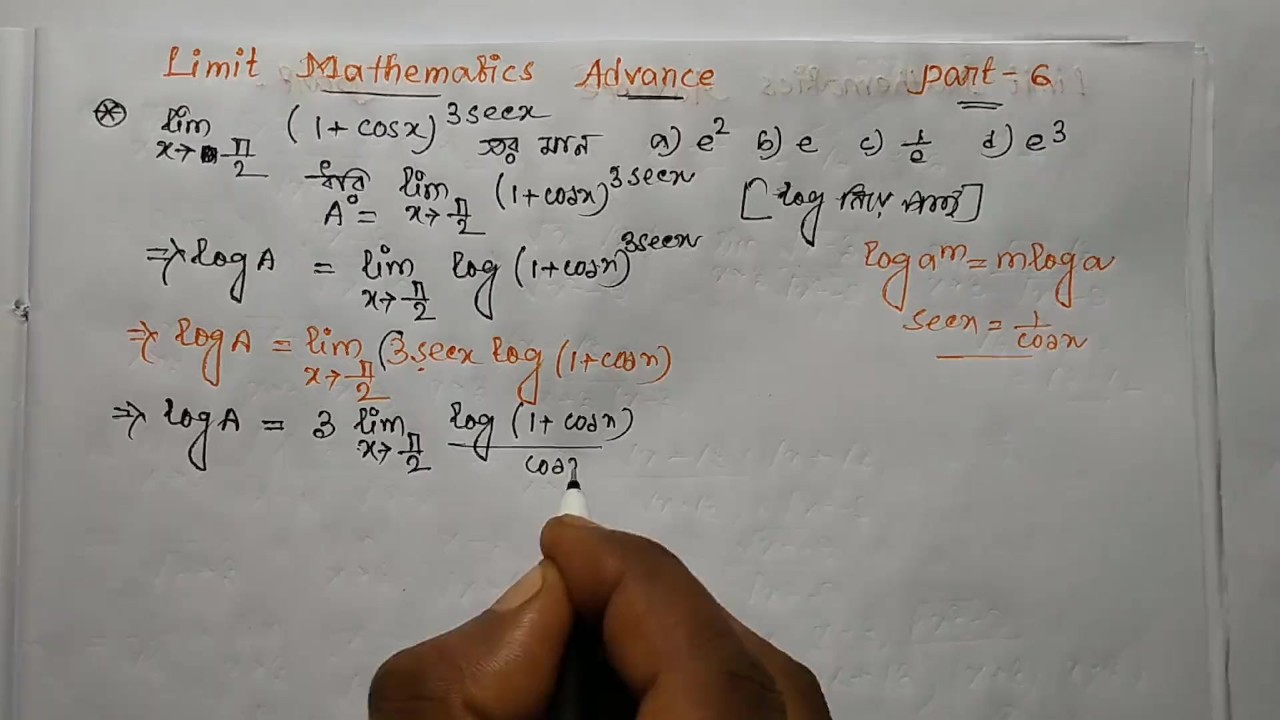 Limit Mathematics Advance Part-6
lim x→π/2 (1+cosx)^3secx এর মান a) e² b) e c) 1/e d) e³
ধরি A = lim x→π/2 (1+cosx)^3secx [log নিয়ে পাই]
⇒ log A = lim x→π/2 log (1+cosx)^3secx
log a^m = m log a
secx = 1/cosx
⇒ log A = lim x→π/2 (3 secx log (1+cosx)
⇒ log A = 3 lim x→π/2 log (1+cosx)/cosx